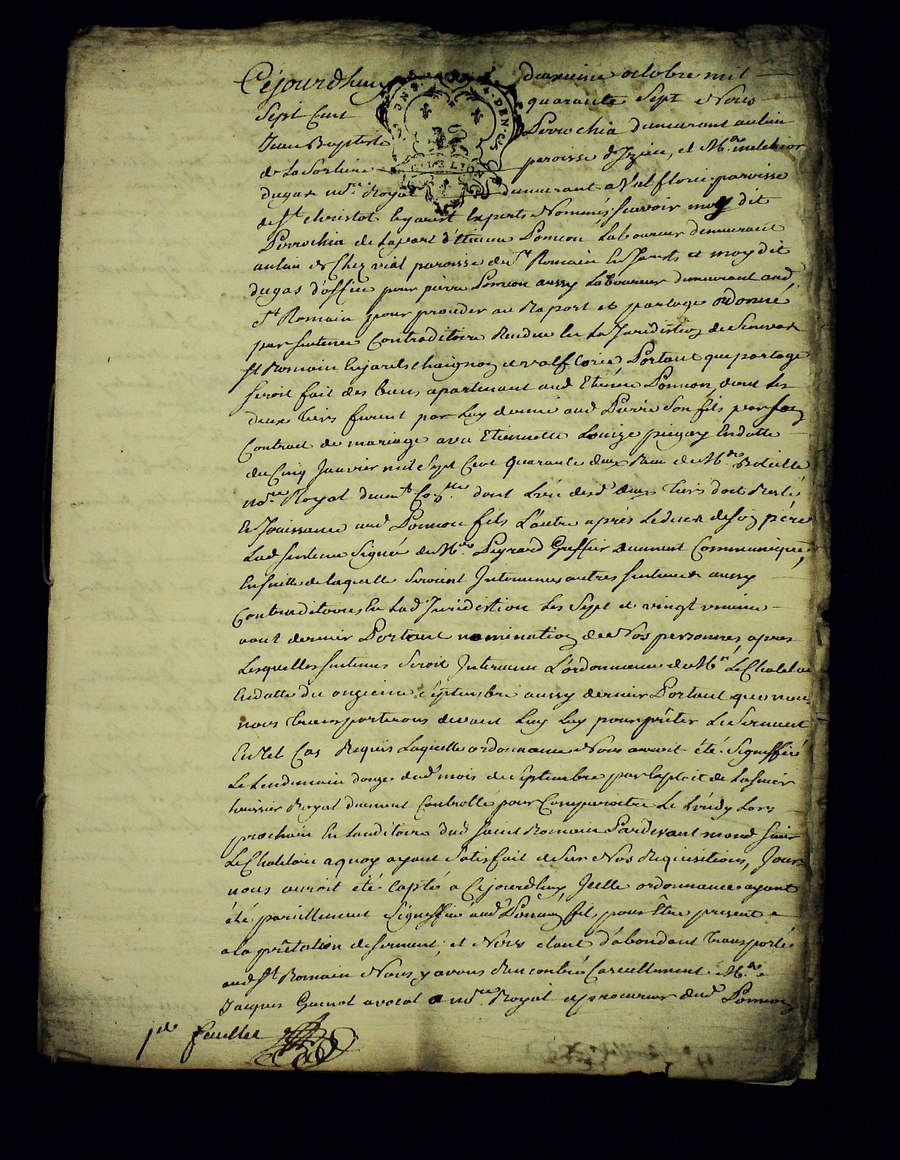 Cejourdhuy deuxieme octobre mil
Sept Cent quarante Sept Nous
Jean Baptiste Perrochia demeurant aulieu
de La Sarliere paroisse d'Izieu, et Me. melchior
dugas nore. Royal demeurant a Valflorie paroisse
de St. christot Lejarest Experts Nommés scavoir moy dit
Perrochia de Lapart d'Etienne Poncon Laboureur demeurant
aulieu de Chez vial paroisse de St. Romain En Jarest et moy dit
dugas d'office pour pierre Poncon aussy Laboureur demeurant aud.
St. Romain pour proceder au Raport et partage ordonné
par sentence Contraditoire Rendue En La Juridiction de
St Romain Enjarest chaignon et valflorie Portant que partage
seroit fait des biens apartenant aud Etienne Poncon dont Les
deux tiers furent par Luy donné aud Pierre Son fils par son
Contrat de mariage avec Etiennette Louize En datte
du Cinq Janvier mil Sept Cent quarante deux Recu de Me.
nore. Royal dument Collé. dont L'un desd. deux tiers doit Resté
En Jouissance aud Poncon fils L'autre après Ledeces de son père
Lad sentence Signée de Me. Peyrard Greffier dument Communiquée,
Ensuitte de laquelle Seroient Intervenues autres sentences aussy
Contraditoires En Lad Juridiction Les Sept et vingt
aout dernier Portant nomination de Nos personnes, apres
Lesquelles sentences Seroit Intervenue L'ordonnance de Mr. Le Chatelain
En datte du onzieme Septembre aussy dernier Portant que nous
nous transporterons devant Luy pour prêter Le Serment
En tel Cas Requis Laquelle ordonnance Nous auroit été Signiffiée
Le Lendemain douze dud mois de Septembre par Exploit de
huissier Royal dument Controllé pour Comparoitre Le Lundy Lors
prochain En Lauditoire dud Saint Romain Pardevant mond Sieur
Le Chatelain a quoy ayant Satisfait et Sur Nos Requisitions, Jour
nous auroit été a Cejourdhuy, Icelle ordonnance ayant
été pareillement Signiffiée aud. Poncon fils, pour Être present
a la prêtation de serment, et Nous etant d'abondant transportés
aud St. Romain Nous y avons Rencontré Casuellement Me.
Jacques Guinot avocat nore. Royal et procureur dud. Poncon
1er feuillet